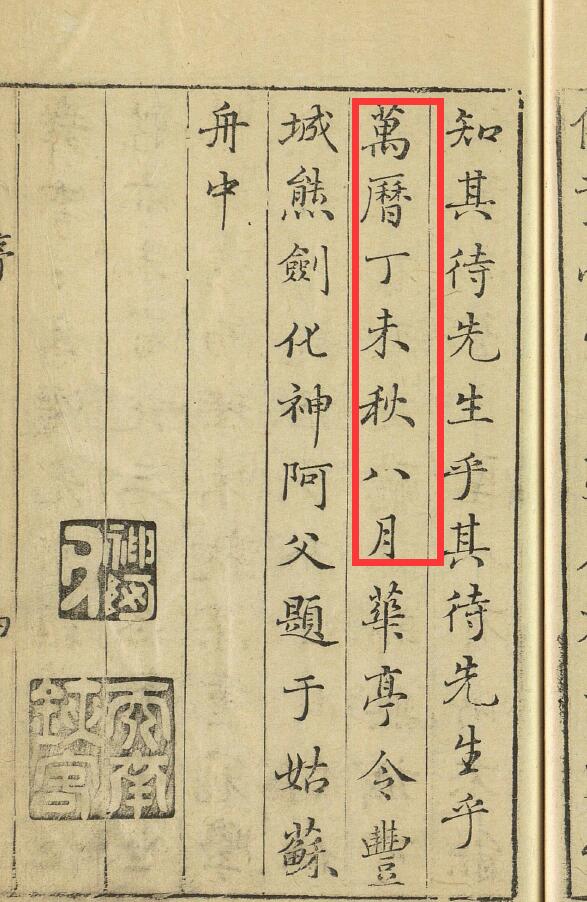 知其待先生乎其待先生乎
萬曆丁未秋八月華亭令豐
城熊劍化神阿父題于姑蘇
舟中